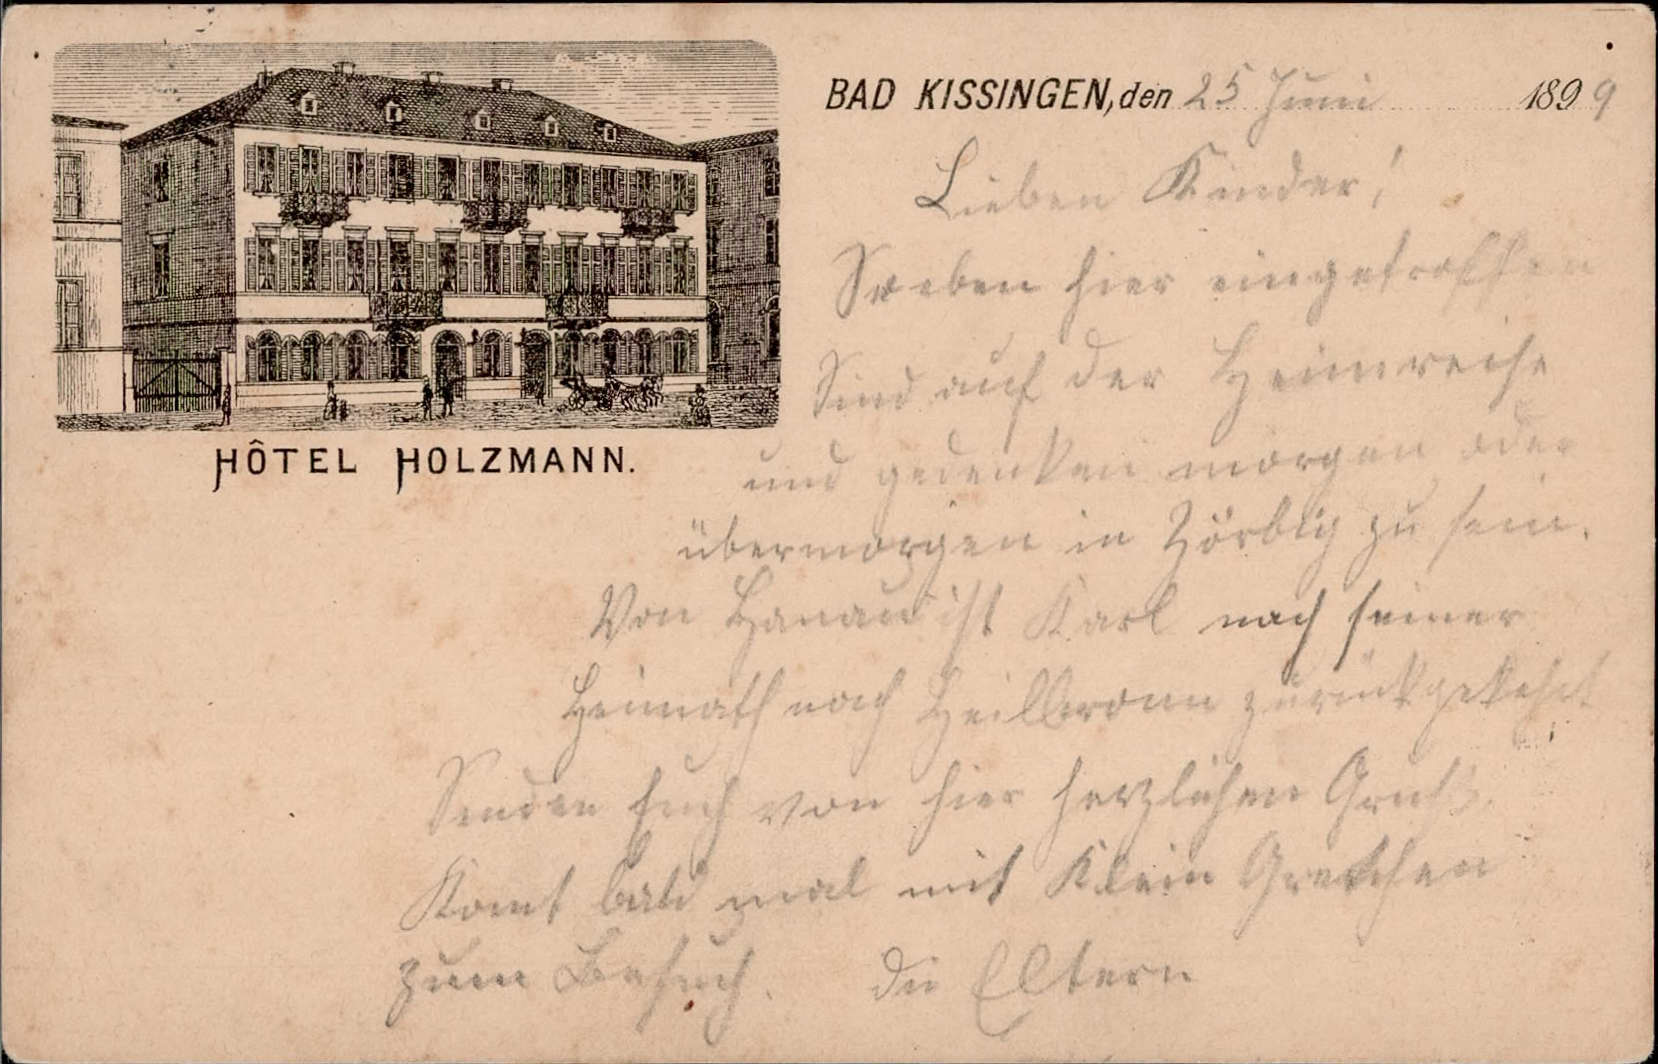 BAD KISSINGEN, den 25 Juni 1899
HÔTEL HOLZMANN.
Lieben Kinder!
Soeben hier eingetroffen
Sind auf der Heimreise
und gedenken morgen oder
übermorgen in Zörbig zu sein.
Von Hanau ist Karl nach seiner
Heimath nach Heilbronn zurückgekehrt
Senden Euch von hier herzlichen Gruß.
Komt bald mal mit Klein Gretchen
zum Besuch. Die Eltern